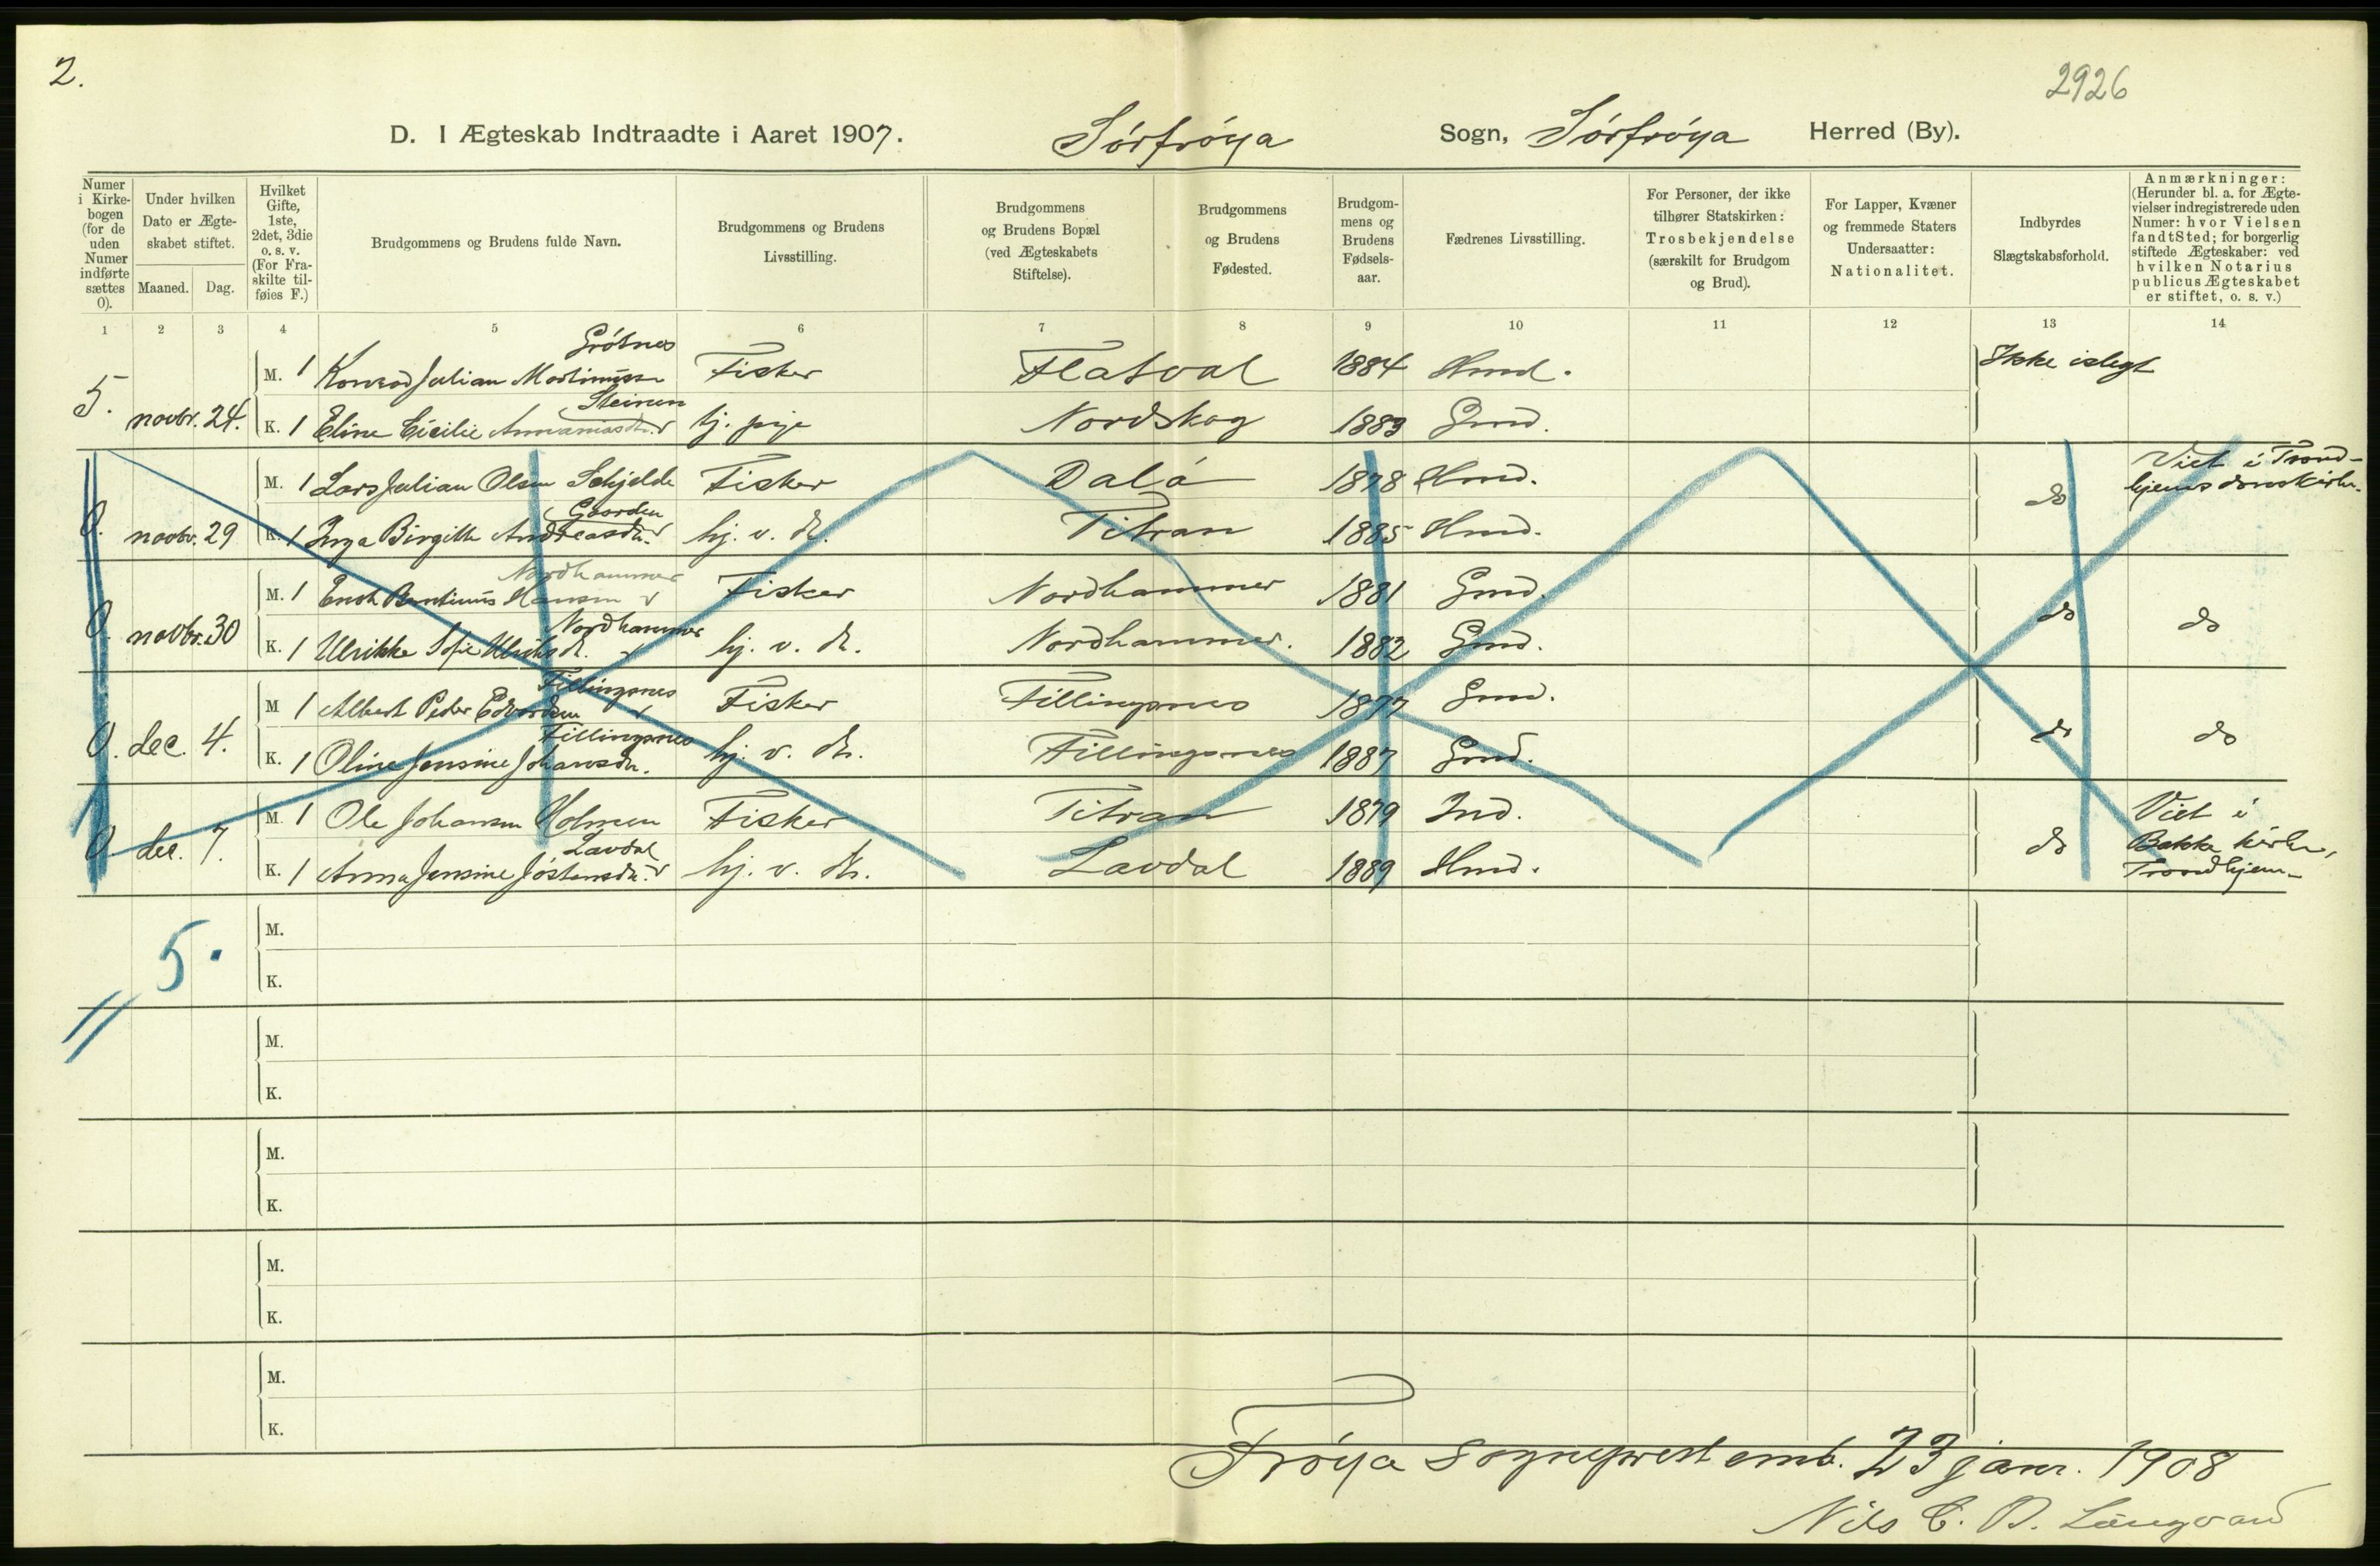 2.
2926
D. I Ægteskab Indtraadte i Aaret 1907. Sórfróya Sogn, Sórfróya Herred (By).
Numer i Kirkebogen (for de uden Numer indførte sættes 0).
Under hvilken Dato er Ægteskabet stiftet.
Maaned. Dag.
Hvilket Gifte, 1ste, 2det, 3die o. s. v. (For Fraskilte tilføies F.)
Brudgommens og Brudens fulde Navn.
Brudgommens og Brudens Livsstilling.
Brudgommens og Brudens Bopæl (ved Ægteskabets Stiftelse).
Brudgommens og Brudens Fødested.
Brudgommens og Brudens Fødselsaar.
Fædrenes Livsstilling.
For Personer, der ikke tilhører Statskirken: Trosbekjendelse (særskilt for Brudgom og Brud).
For Lapper, Kvæner og fremmede Staters Undersaatter: Nationalitet.
Indbyrdes Slægtskabsforhold.
Anmærkninger: (Herunder bl. a. for Ægtevielser indregistrerede uden Numer: hvor Vielsen fandt Sted; for borgerlig stiftede Ægteskaber: ved hvilken Notarius publicus Ægteskabet er stiftet, o. s. v.)
1 2 3 4 5 6 7 8 9 10 11 12 13 14
Grótnes
M. 1 Konrad Julian Martinussen Fisker Flatval 1884 Hmd. Ikke islegt
Steinen
5. novbr. 24. K. 1 Eline Cicilie Annaniasdtr. tj. pige Nordskog 1883 Gmd.
M. 1 Lars Julian Olsen Schjelde Fisker Dalá 1878 Hmd. do Viet i Trondhjems domskirke.
Gaarden
0. novbr. 29 K. 1 Inga Birgitte Andreasdtr. hj. v. dtr. Titran 1885 Hmd.
Nordhammer
M. 1 Enok Bentinus Hansen Fisker Nordhammer 1881 Gmd. do do
Nordhammer
0. novbr. 30 K. 1 Ulrikke Sofie Ulriksdtr. hj. v. dtr. Nordhammer. 1882 Gmd.
Fillingsnes
M 1 Albert Peder Edvardsen Fisker Fillingsnes 1877 Gmd. do do
Fillingsnes
0. dec. 4. K. 1 Oline Jensine Johansdtr. hj. v. dtr. Fillingsnes 1887 Gmd.
M. 1 Ole Johansen Holmen Fisker Titran 1879 Ind. do Viet i Bakke kirke, Trondhjem
Lavdal
0. dec. 7. K. 1 Anna Jensine Jóstensdtr. hj. v. dtr. Lavdal 1889 Hmd.
5.
M.
K.
M.
K.
M.
K.
M.
K.
M.
K.
Fróya sogneprestemb. 23 janr. 1908
Nils C. D.